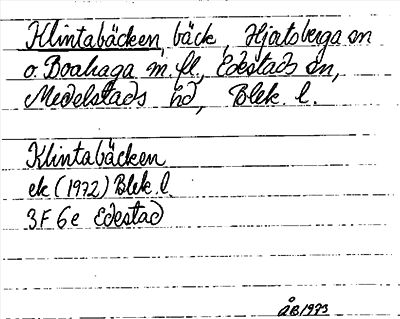 Klintabäcken, bäck, Hjortsberga sn
o. Boahaga m. fl., Edestads sn,
Medelstads hd, Blek. l.
Klintabäcken
ek (1972) Blek. l.
3F 6e Edestad
ÅB 1973